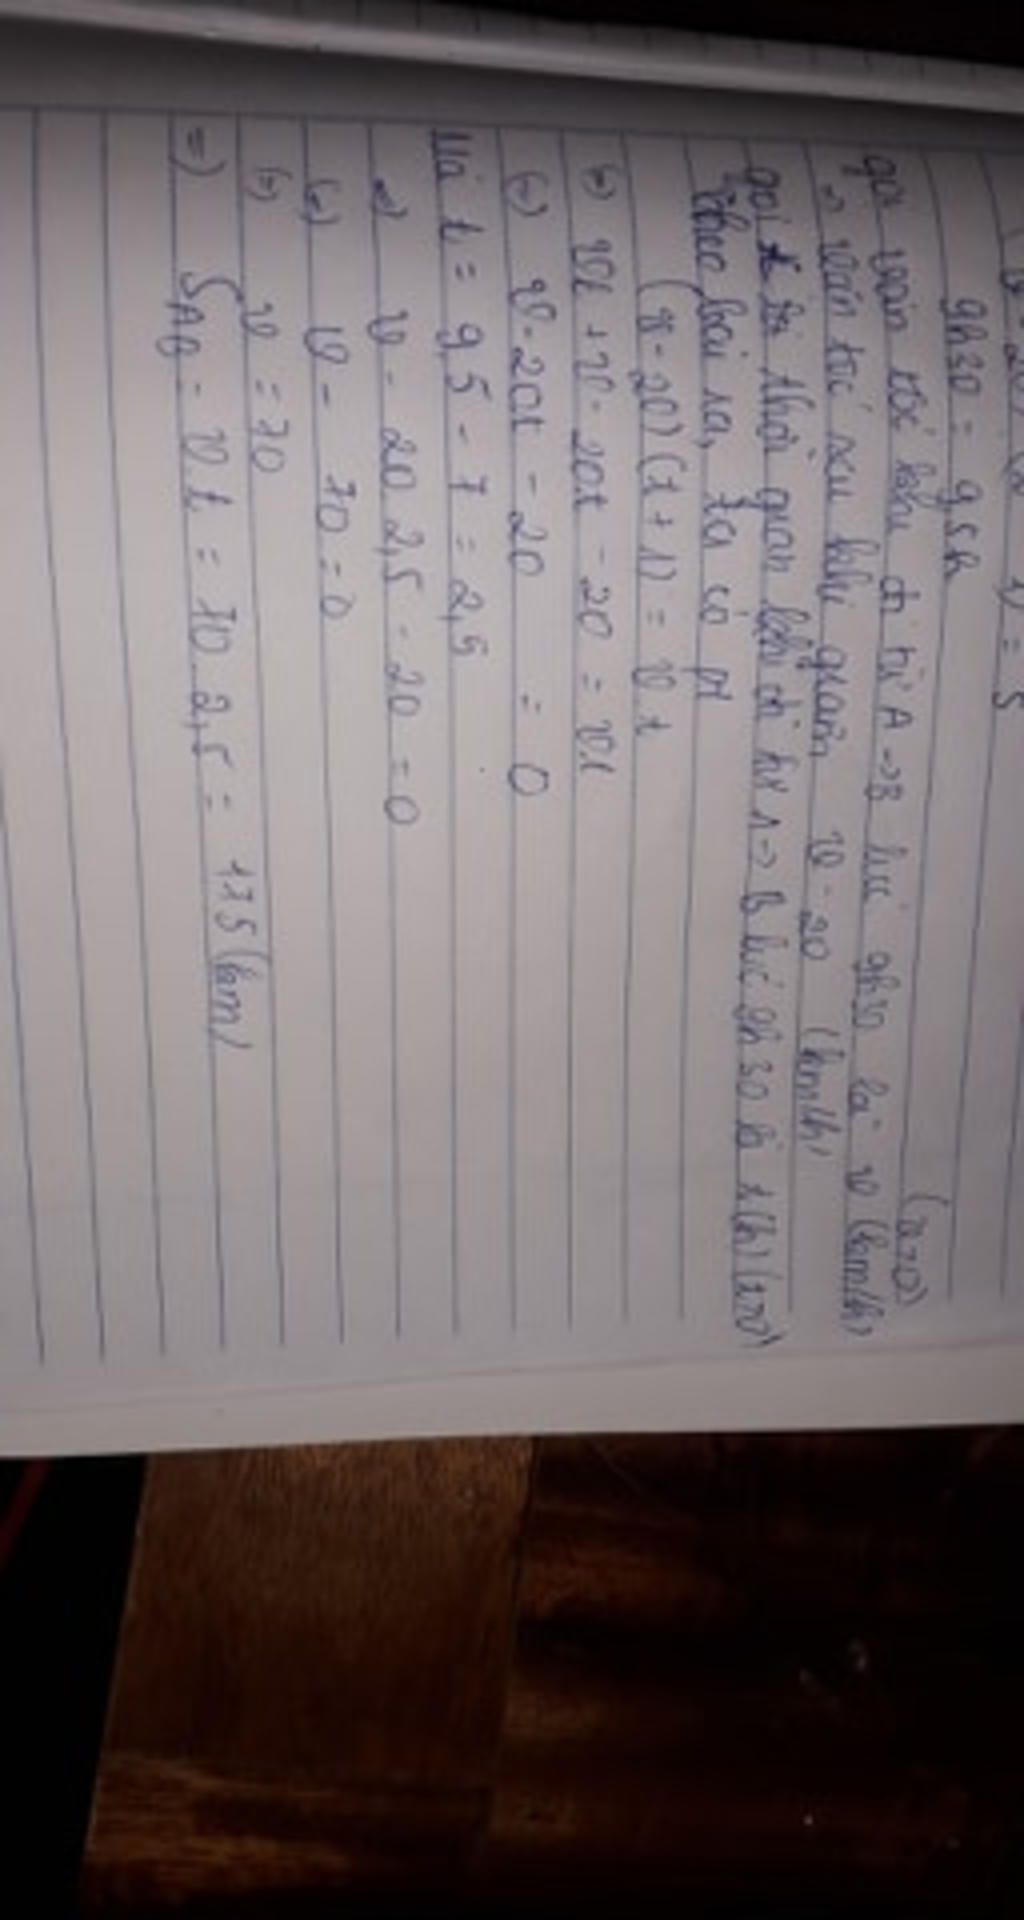 1) = 5
9h30 = 9,5h
(v>0)
gọi vận tốc khi đi từ A -> B lúc 9h30 là v (km/h)
=> vận tốc sau khi quan v - 20 (km/h)
gọi t là thời gian khi đi từ A -> B lúc 9h30 là t(h) (t>0)
theo bài ra, ta có pt
(v - 20) (t + 1) = v.t
(=) vt + v - 20t - 20 = vt
(=) v - 20t - 20 = 0
Mà t = 9,5 - 7 = 2,5
=) v - 20.2,5 - 20 = 0
(=) v - 70 = 0
(=) v = 70
=) SAB = v.t = 70.2,5 = 175 (km)